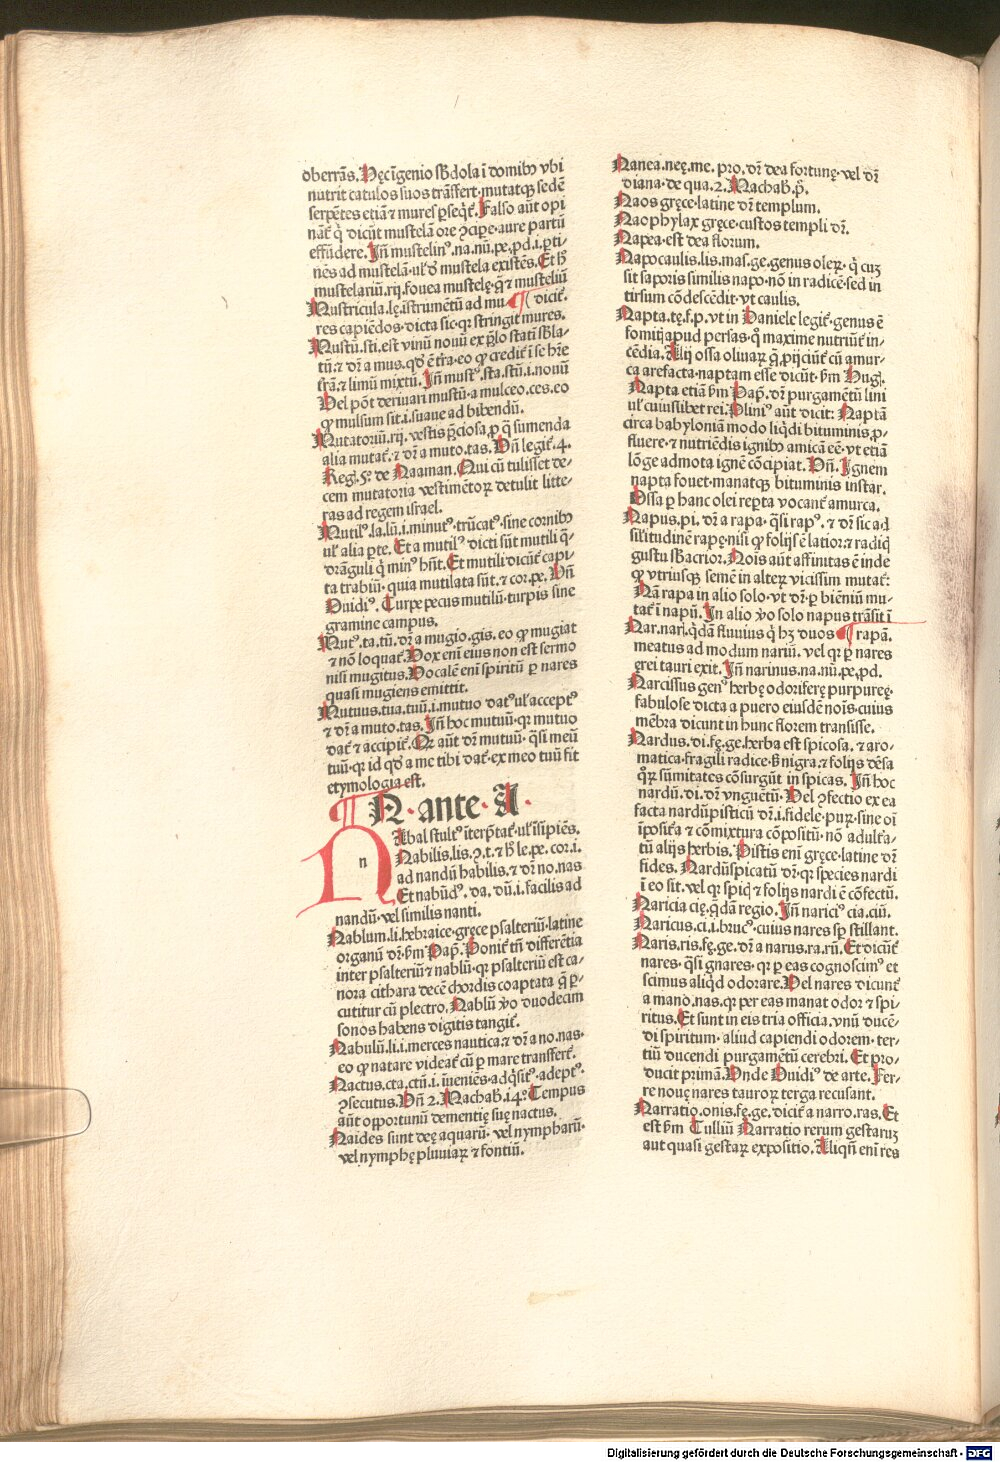 oberrās. Hęc īgenio sƀdola ī domibꝰ vbi
nutrit catulos suos trāsfert. mutatqꝫ sedē
serpētes etiā ⁊ mures ꝑseq̄t᷑. Falso aūt opi
nāt᷑ q̇ dicūt mustelā ore ꝯcipe. aure partū
effūdere. Iñ mustelinꝰ .na.nū.pe.ꝑd.i.ꝑti-
nēs ad mustelā. uł ð mustela existēs. Et ħ
mustelariū.rij. fouea mustelę. q̄ ⁊ musteliū
Mustricula.lę. īstrumētū ad mu- ¶ dicit᷑.
res capiēdos. dicta sic. qꝛ stringit mures.
Mustū.sti. est vinū nouū ex ꝑlo statī sƀla-
tū. ⁊ dꝛ̄ a mus. qð ē tr̄a. eo ꝙ credit᷑ ī se hr̄e
tr̄ā. ⁊ limū mixtū. Iñ mustꝰ.sta.stū.i. nouū
Vel pōt deriuari mustū a mulceo.ces. eo
ꝙ mulsum sit. i. suaue ad bibendū.
Mutatoriū.rij. vestis p̄ciosa. ꝓ q̄ sumenda
alia mutat᷑. ⁊ dꝛ̄ a muto.tas. Vñ legit᷑. 4.
Reg. 5ꝰ. de Naaman. Qui cū tulisset de-
cem mutatoria vestimētoꝝ detulit litte-
ras ad regem israel.
Mutilꝰ.la.lū.i. minutꝰ. trūcatꝰ. sine cornibꝰ
uł alia ꝑte. Et a mutilꝰ dicti sūt mutili q̄-
drāguli q̇ minꝰ hn̄t. Et mutili dicūt᷑ capi-
ta trabiū. quia mutilata sūt. ⁊ coꝛ.pe. Vñ
Ouidiꝰ. Turpe pecus mutilū. turpis sine
gramine campus.
Mutꝰ.ta.tū. dꝛ̄ a mugio.gis. eo ꝙ mugiat
⁊ nō loquat᷑. Vox enī eius non est sermo
nisi mugitus. Vocalē enī spiritū ꝑ nares
quasi mugiens emittit.
Mutuus.tua.tuū.i. mutuo datꝰ uł acceptꝰ
⁊ dꝛ̄ a muto.tas. Iñ hoc mutuū. qꝛ mutuo
dat᷑ ⁊ accipit᷑. Qꝛ aūt dꝛ̄ mutuū. q̄si meū
tuū. qꝛ id qð a me tibi dat᷑. ex meo tuū fit
etymologia est.
¶ N. ante. A.
n NAbal stultꝰ īterp̄tat᷑. uł īsipiēs.
Nabilis.lis. ꝯ.t. ⁊ ħ le. pe.coꝛ.i.
ad nandū habilis. ⁊ dꝛ̄ no.nas
Et nabūdꝰ.da.dū.i. facilis ad
nandū. vel similis nanti.
Nablum.li. hebraice. gręce psalteriū. latine
organū dꝛ̄. ẜm Pap̄. Ponit᷑ tn̄ differētia
inter psalteriū ⁊ nablū. qꝛ psalteriū est ca-
nora cithara decē chordis coaptata q̄ ꝑ-
cutitur cū plectro. Nablū ꝟo duodecim
sonos habens digitis tangit᷑.
Nabulū.li.i. merces nautica. ⁊ dꝛ̄ a no.nas.
eo ꝙ natare videat᷑ cū ꝑ mare transfert᷑.
Nactus.cta.ctū.i. īueniēs. adq̇sitꝰ. adeptꝰ.
ꝯsecutus. Vñ 2. Machab̄. 14ꝰ. Tempus
aūt opportunū dementię suę nactus.
Naides sunt deę aquarū. vel nympharū.
vel nymphę pluuiaꝝ ⁊ fontiū.
Nanea.neę. me. ꝓdꝛ̄ dea fortunę. vel dꝛ̄
diana. de qua. 2. Machab̄. p̊.
Naos gręce. latine dꝛ̄ templum.
Naophylax gręce. custos templi dꝛ̄.
Napea. est dea florum.
Napocaulis.lis. mas.ge. genus oleꝝ. q̇ cuꝫ
sit saporis similis napo. nō in radicē. sed in
tirsum cōdescēdit. vt caulis.
Napta.tę. f.p. vt in Daniele legit᷑. genus ē
fomitꝭ apud persas. q̊ maxime nutriūt᷑ in-
cēdia. Alij ossa oliuaꝝ q̄ ꝓijciūt᷑ cū amur-
ca arefacta. naptam esse dicūt. ẜm Huḡ.
Napta etiā ẜm Pap̄. dꝛ̄ purgamētū lini
uł cuiuslibet rei. Pliniꝰ aūt dicit: Naptā
circa babyloniā modo liq̇di bituminis. ꝓ-
fluere. ⁊ nutriēdis ignibꝰ amicā eē. vt etiā
lōge admota ignē cōcipiat. Vñ. Ignem
napta fouet. manatqꝫ bituminis instar.
Ossa ꝑ hanc olei repta vocant᷑ amurca.
Napus.pi. dꝛ̄ a rapa. q̄si rapꝰ. ⁊ dꝛ̄ sic ad
sil'itudinē rapę. nisi ꝙ folijs ē latior. ⁊ radiq̄
gustu sƀacrior. Nōis aūt affinitas ē inde
ꝙ vtriusqꝫ semē in alteꝝ vicissim mutat᷑:
Nā rapa in alio solo. vt dꝛ̄. ꝑ biēniū mu-
tat᷑ ī napū. In alio ꝟo solo napus trāsit ī
Nar.narꝭ. q̇dā fluuius q̇ hꝫ duos ¶ rapā.
meatus ad modum nariū. vel qꝛ ꝑ nares
ęrei tauri exit. Iñ narinus.na.nū. pe.ꝑd.
Narcissus genꝰ herbę odoriferę purpureę.
fabulose dicta a puero eiusdē nois. cuius
mēbra dicunt in hunc florem transisse.
Nardus.di. fę.ge. herba est spicosa. ⁊ aro-
matica. fragili radice. ẜ nigra. ⁊ folijs dēsa
q̊ꝝ sūmitates cōsurgūt in spicas. Iñ hoc
nardū.di. dꝛ̄ vnguētū. Vel ꝯfectio ex ea
facta nardū pisticū dꝛ̄. i. fidele. puꝝ. sine oī
īposit᷑a ⁊ cōmixtura cōpositū. nō adult᷑a-
tū alijs herbis. Pistis enī gręce. latine dꝛ̄
fides. Nardū spicatū dꝛ̄. qꝛ species nardi
ī eo sit. vel qꝛ spicꝭ ⁊ folijs nardi ē cōfectū.
Naricia cię. q̄dā regio. Iñ nariciꝰ cia.ciū.
Naricus.ci.i. brucꝰ. cuius nares sp̄ stillant.
Naris.ris. fę.ge. dꝛ̄ a narus.ra.rū. Et dicūt᷑
nares. q̄si gnares. qꝛ ꝑ eas cognoscimꝰ et
scimus aliq̇d odorare. Vel nares dicunt᷑
a mano.nas. qꝛ per eas manat odor ⁊ spi-
ritus. Et sunt in eis tria officia. vnū ducē-
di spiritum. aliud capiendi odorem. ter-
tiū ducendi purgamētū cerebri. Et pro-
ducit primā. Vnde Ouidiꝰ de arte. Fer-
re nouę nares tauroꝝ terga recusant.
Narratio.onis. fę.ge. dicit᷑ a narro.ras. Et
est ẜm Tulliū Narratio rerum gestaruꝫ
aut quasi gestaꝝ expositio. Aliqn̄ enī res
Digitalisierung gefördert durch die Deutsche Forschungsgemeinschaft - DFG